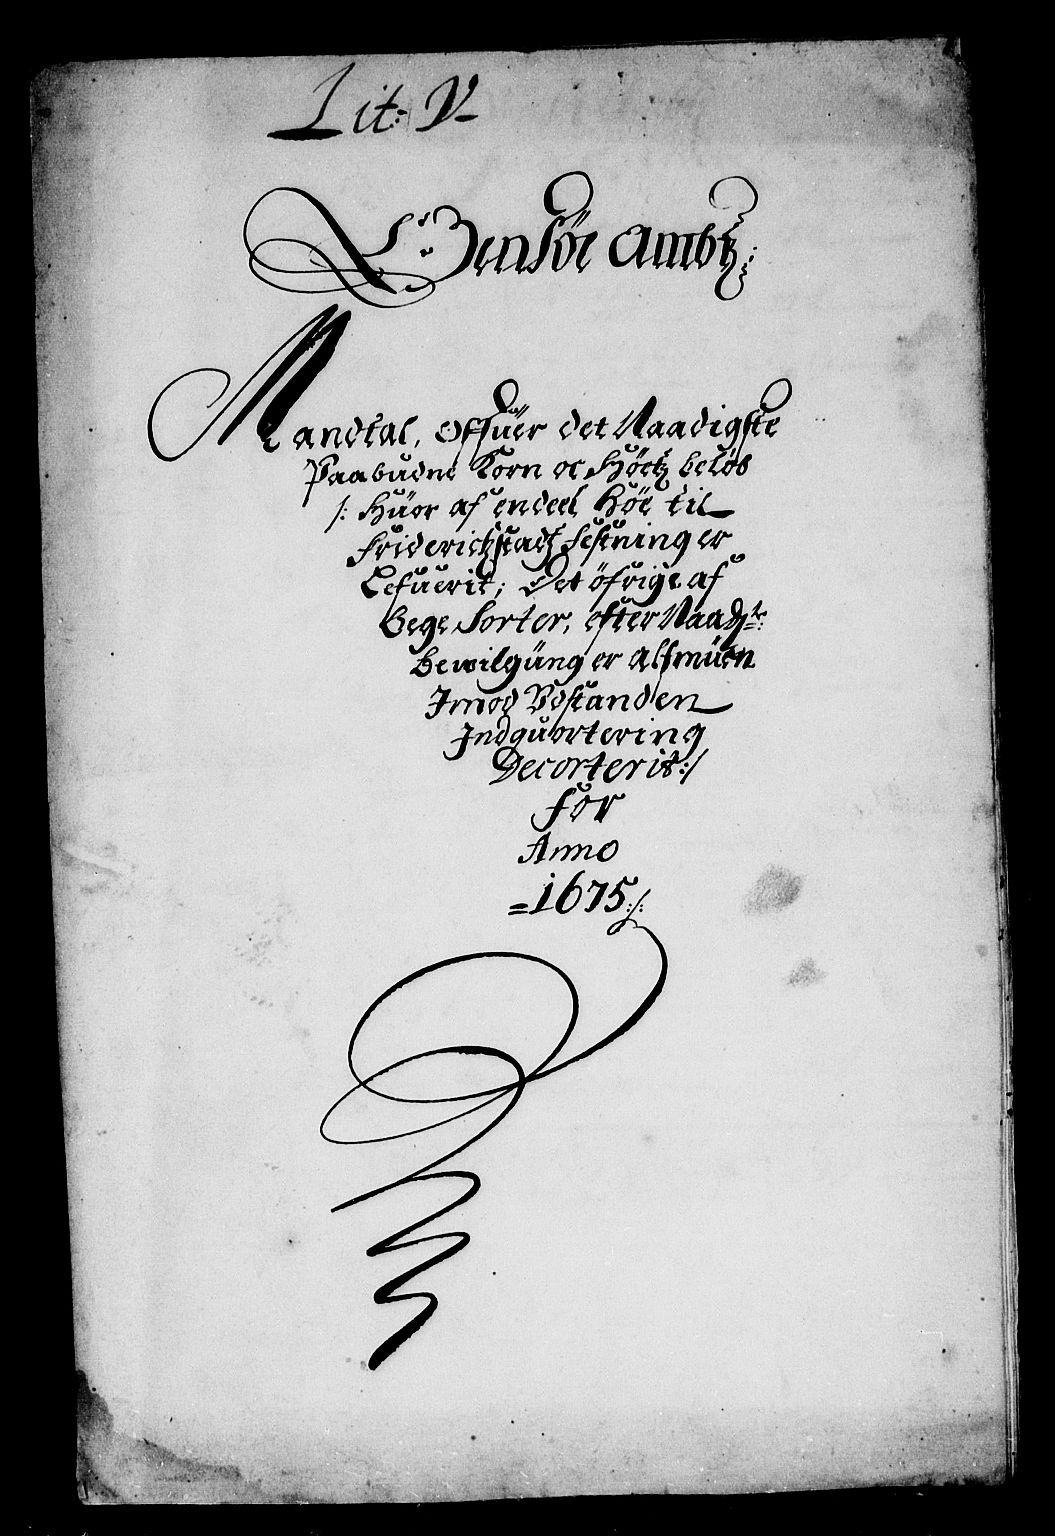 Lit: V
Tönsöe Ambtz:
Mandtal, Offuer det Naadigste
Paabudne Korn oc Höetz beløb
/: Huor af endeel Höe til
Friderichstadtz Festning er
Lefuerit; Det öfrige af
Bege Sorter, efter Naadgte:
Bewilgüng er Alfmüen
Imod Udstanden
Indquortering
Decorterit:/
for
Anno
=1675:/: